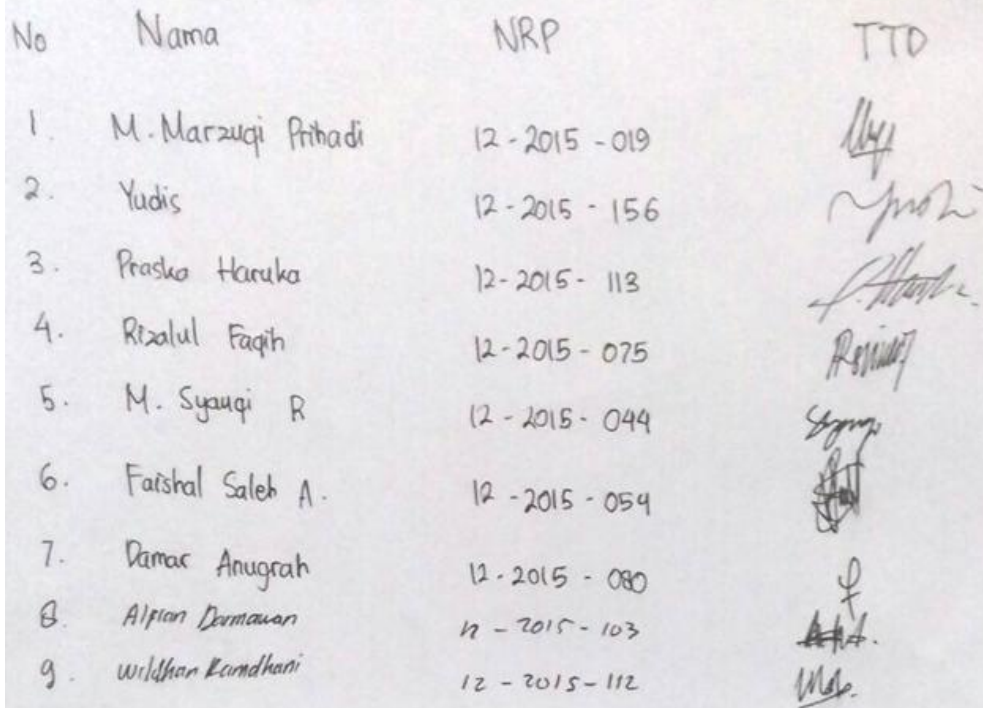 No Nama NRP TTD
1. M. Marzuqi Prihadi 12-2015-019
2. Yudis 12-2015-156
3. Prasko Haruka 12-2015-113
4. Rizalul Faqih 12-2015-075
5. M. Syauqi R 12-2015-044
6. Faishal Saleh A. 12-2015-054
7. Damar Anugrah 12-2015-080
8. Alfian Darmawan 12-2015-103
9. Wildhan Ramdhani 12-2015-112